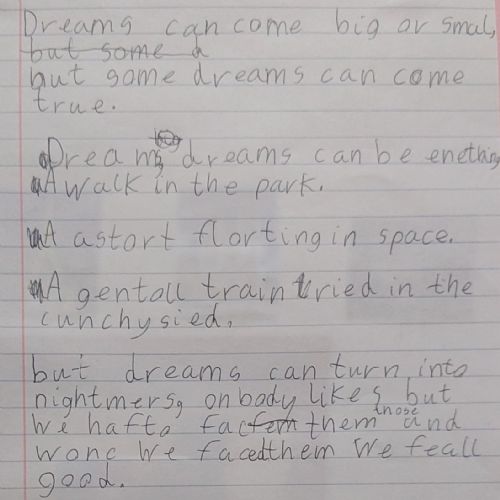 Dreams can come big or smal,
but some a
but some dreams can come
true.
Dreams dreams can be enething
A walk in the park.
A astort florting in space.
A gentoll train tried in the
cunchysied.
but dreams can turn into
nightmers, onbody likes but
we hafto fac them those and
wonc we faced them we feall
good.